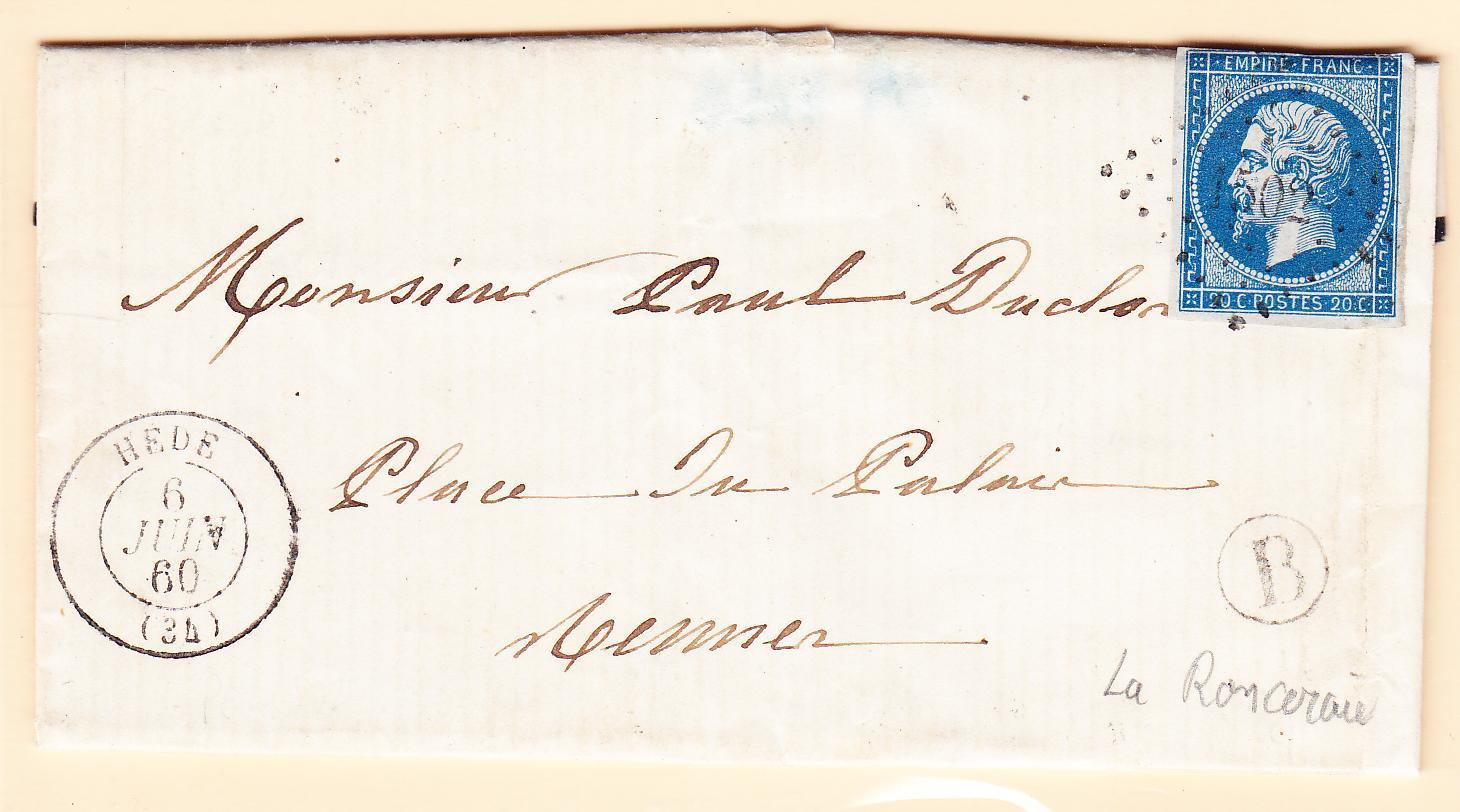 EMPIRE FRANC
20 C POSTES 20 C
Monsieur Paul
Place Du Palais
Rennes
HEDE
6
JUIN
60
(34)
B
La Ronceraie